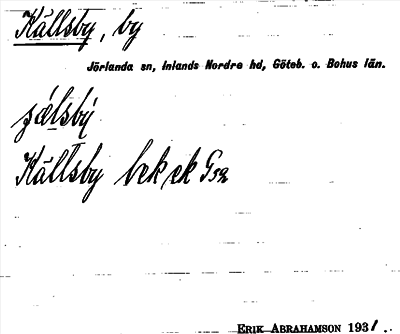 Källsby, by
Jörlanda sn, Inlands Nordre hd, Göteb. o. Bohus län.
Källsby bek ek G52
ERIK ABRAHAMSON 1931.